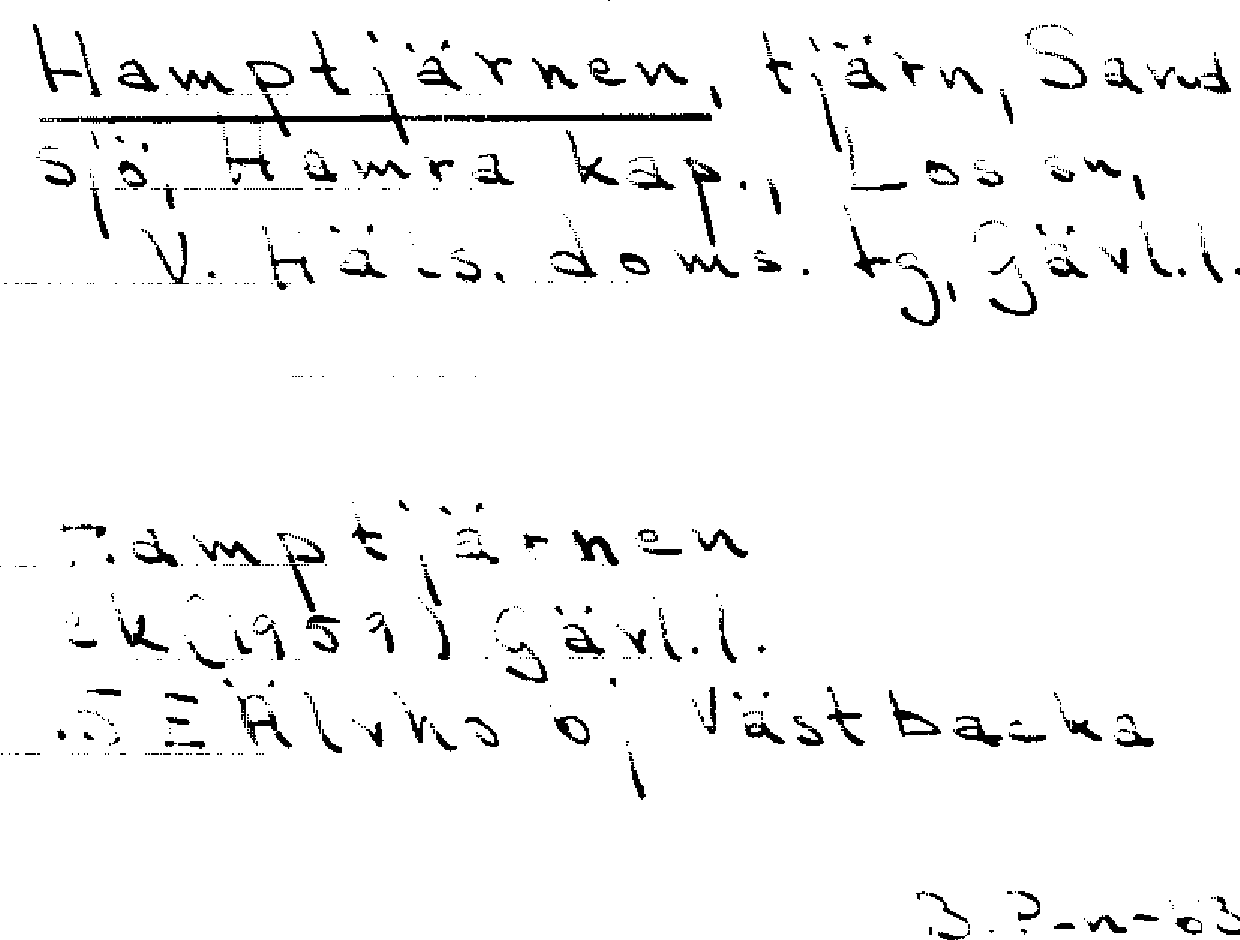 Hamptjärnen, tjärn, Sand
sjö, Hamra kap., Los sn,
V. Häls. doms. tg, Gävl.l.
Hamptjärnen
Ek (1959) Gävl.l.
Västbacka